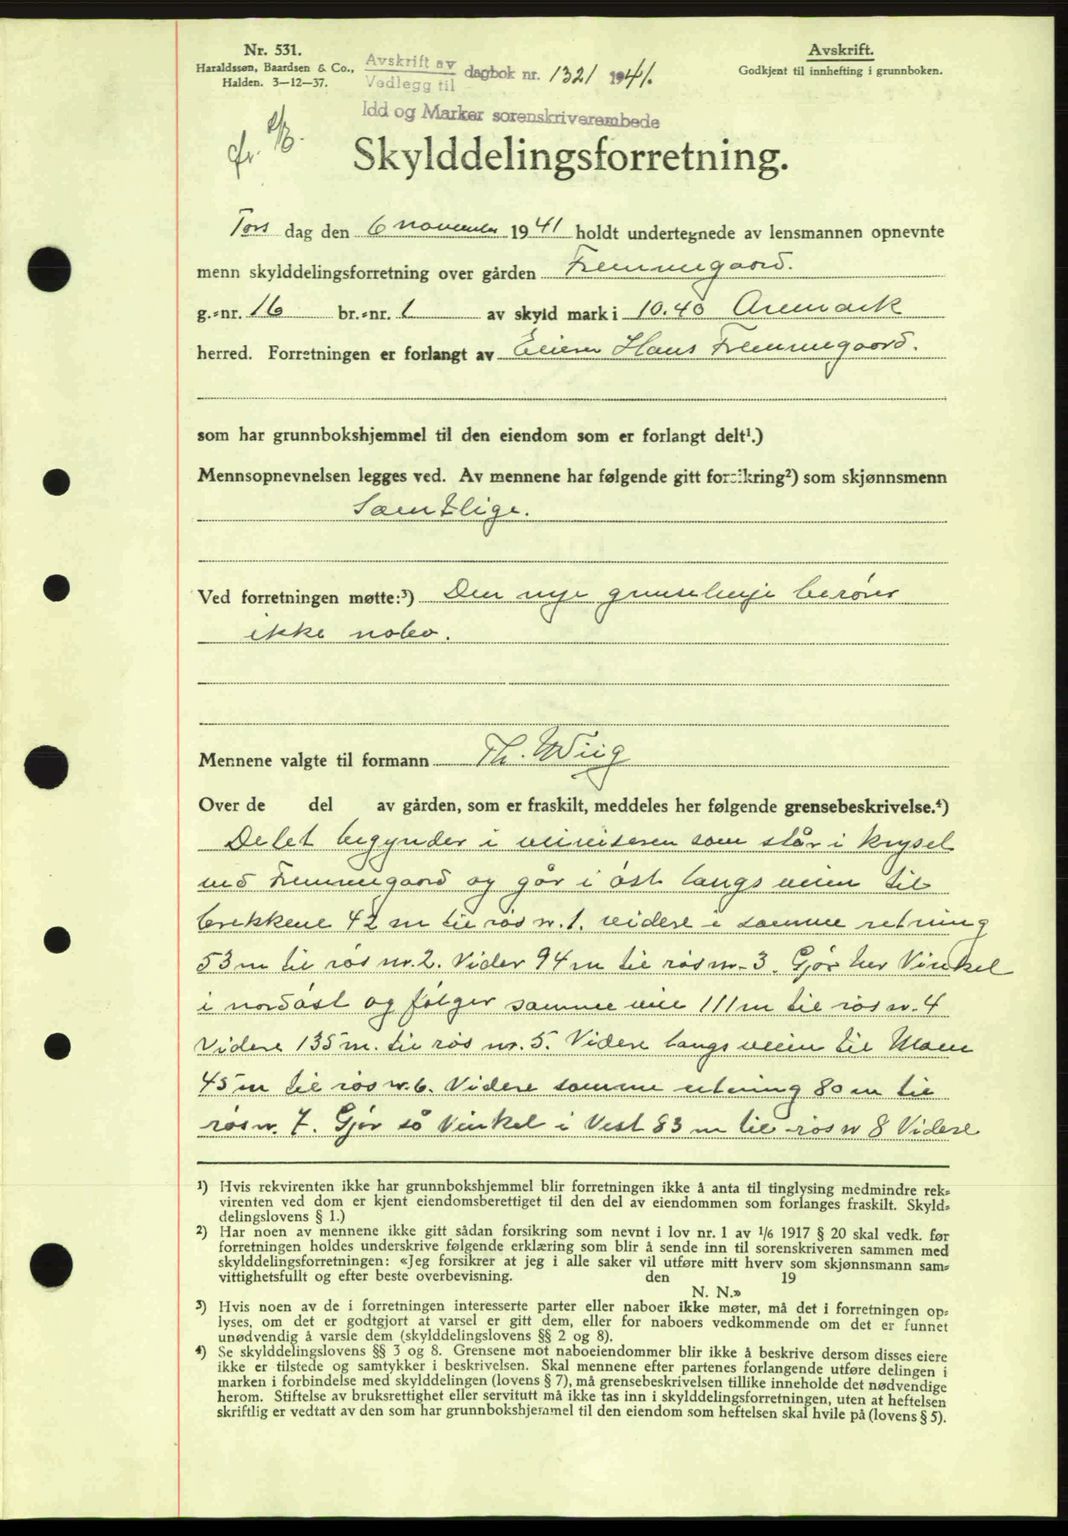 Nr. 531.
Haraldssøn, Baardsen & Co.,
Halden. 3—12—37.
Avskrift av
Vedlegg til
dagbok nr. 1321 1941.
Idd og Marker sorenskriverembede
Avskrift.
Godkjent til innhefting i grunnboken.
Skylddelingsforretning.
Tors dag den 6 november 1941 holdt undertegnede av lensmannen opnevnte
menn skylddelingsforretning over gården Fremmegaard.
g.=nr. 16 br.=nr. 1 av skyld mark i 10.40 Aremark
herred. Forretningen er forlangt av Eieren Hans Fremmegaard.
som har grunnbokshjemmel til den eiendom som er forlangt delt¹.)
Mennsopnevnelsen legges ved. Av mennene har følgende gitt forsikring²) som skjønnsmenn
Samtlige.
Ved forretningen møtte:³) Den nye grenselinje berører
ikke nabo.
Mennene valgte til formann Th. Wiig
Over de del av gården, som er fraskilt, meddeles her følgende grensebeskrivelse.⁴)
Delet begynder i som står i krysset
ved Fremmegaard og går i øst langs veien til
brekkene 42 m til røs nr. 1. videre i samme retning
53 m til røs nr. 2. Vider 94 m til røs nr. 3. Gjør her Vinkel
i nordøst og følger samme vei 111 m til røs nr. 4
Videre 135 m. til røs nr. 5. Videre langs veien til
45 m til røs nr. 6. Videre samme retning 80 m til
røs nr. 7. Gjør så Vinkel i Vest 83 m til røs nr 8 Videre
¹) Hvis rekvirenten ikke har grunnbokshjemmel blir forretningen ikke å anta til tinglysing medmindre rek=
virenten ved dom er kjent eiendomsberettiget til den del av eiendommen som forlanges fraskilt. Skyld=
delingslovens § 1.)
²) Har noen av mennene ikke gitt sådan forsikring som nevnt i lov nr. 1 av 1/6 1917 § 20 skal vedk. før
forretningen holdes underskrive følgende erklæring som blir å sende inn til sorenskriveren sammen med
skylddelingsforretningen: «Jeg forsikrer at jeg i alle saker vil utføre mitt hverv som skjønnsmann sam=
vittighetsfullt og efter beste overbevisning. den 19
N. N.»
³) Hvis noen av de i forretningen interesserte parter eller naboer ikke møter, må det i forretningen op=
lyses, om det er godtgjort at varsel er gitt dem, eller for naboers vedkommende om det er funnet
unødvendig å varsle dem (skylddelingslovens §§ 2 og 8).
⁴) Se skylddelingslovens §§ 3 og 8. Grensene mot naboeiendommer blir ikke å beskrive dersom disses eiere
ikke er tilstede og samtykker i beskrivelsen. Skal mennene efter partenes forlangende utføre delingen i
marken i forbindelse med skylddelingen (lovens § 7), må grensebeskrivelsen tillike inneholde det nødvendige
herom. Stiftelse av bruksrettighet eller servitutt må ikke tas inn i skylddelingsforretningen, uten at heftelsen
skriftlig er vedtatt av den som har grunnbokshjemmel til den eiendom som heftelsen skal hvile på (lovens § 5).